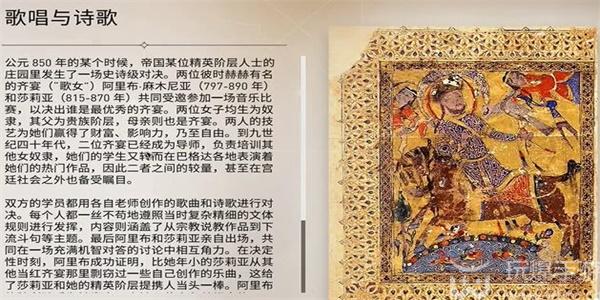 歌唱与诗歌
公元 850 年的某个时候，帝国某位精英阶层人士的
庄园里发生了一场史诗级对决。两位彼时赫赫有名
的齐宴（“歌女”）阿里布·麻木尼亚（797-890 年）
和莎莉亚（815-870 年）共同受邀参加一场音乐比
赛，以决出谁是最优秀的齐宴。两位女子均生为奴
隶，其父为贵族阶层，母亲则也是齐宴。两人的技
艺为她们赢得了财富、影响力，乃至自由。到九世
纪四十年代，二位齐宴已经成为导师，负责培训其
他女奴隶，她们的学生又转而在巴格达各地表演着
她们的热门作品，因此二者之间的较量，甚至在宫
廷社会之外也备受瞩目。
双方的学员都用各自老师创作的歌曲和诗歌进行对
决。每个人都一丝不苟地遵照当时复杂精细的文体
规则进行发挥，内容则涵盖了从宗教说教作品到下
流斗句等主题。最后阿里布和莎莉亚亲自出场，共
同在一场充满机智对答的讨论中相互角力。在决定
性时刻，阿里布成功证明，比她年小的莎莉亚从其
他当红齐宴那里剽窃过一些自己创作的乐曲，这给
了莎莉亚和她的精英阶层提携人当头一棒。阿里布